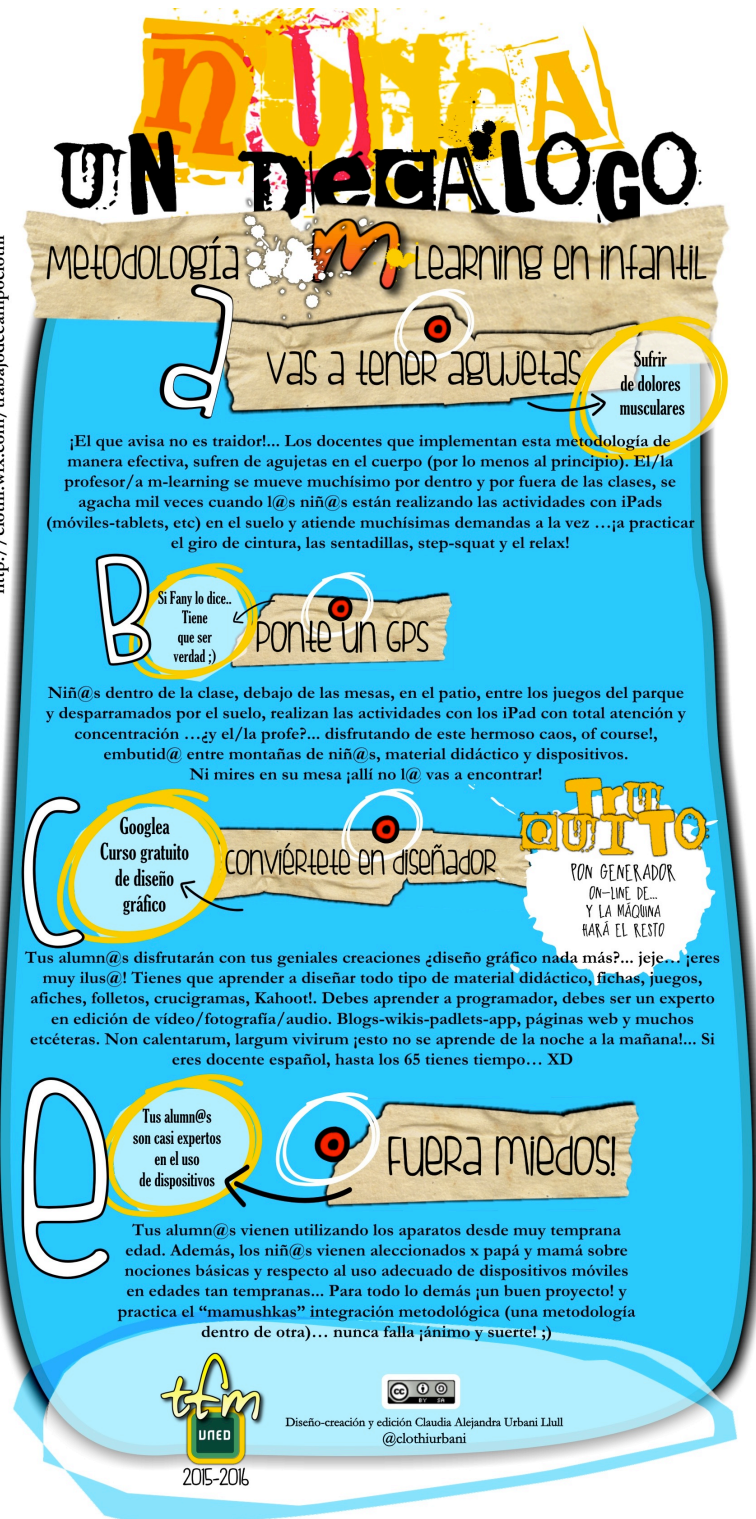 nUNcA
UN DecALOGO
Metodología m Learning en infantil
a
Vas a tener agujetas
Sufrir
de dolores
musculares
¡El que avisa no es traidor!... Los docentes que implementan esta metodología de
manera efectiva, sufren de agujetas en el cuerpo (por lo menos al principio). El/la
profesor/a m-learning se mueve muchísimo por dentro y por fuera de las clases, se
agacha mil veces cuando l@s niñ@s están realizando las actividades con iPads
(móviles-tablets, etc) en el suelo y atiende muchísimas demandas a la vez …¡a practicar
el giro de cintura, las sentadillas, step-squat y el relax!
B
Si Fany lo dice..
Tiene
que ser
verdad ;)
Ponte un GPS
Niñ@s dentro de la clase, debajo de las mesas, en el patio, entre los juegos del parque
y desparramados por el suelo, realizan las actividades con los iPad con total atención y
concentración …¿y el/la profe?... disfrutando de este hermoso caos, of course!,
embutid@ entre montañas de niñ@s, material didáctico y dispositivos.
Ni mires en su mesa ¡allí no l@ vas a encontrar!
C
Googlea
Curso gratuito
de diseño
gráfico
Conviértete en diseñador
Tru
QUITO
PON GENERADOR
ON-LINE DE...
Y LA MÁQUINA
HARÁ EL RESTO
Tus alumn@s disfrutarán con tus geniales creaciones ¿diseño gráfico nada más?... jeje… ¡eres
muy ilus@! Tienes que aprender a diseñar todo tipo de material didáctico, fichas, juegos,
afiches, folletos, crucigramas, Kahoot!. Debes aprender a programador, debes ser un experto
en edición de vídeo/fotografía/audio. Blogs-wikis-padlets-app, páginas web y muchos
etcéteras. Non calentarum, largum vivirum ¡esto no se aprende de la noche a la mañana!... Si
eres docente español, hasta los 65 tienes tiempo… XD
e
Tus alumn@s
son casi expertos
en el uso
de dispositivos
Fuera miedos!
Tus alumn@s vienen utilizando los aparatos desde muy temprana
edad. Además, los niñ@s vienen aleccionados x papá y mamá sobre
nociones básicas y respecto al uso adecuado de dispositivos móviles
en edades tan tempranas... Para todo lo demás ¡un buen proyecto! y
practica el “mamushkas” integración metodológica (una metodología
dentro de otra)… nunca falla ¡ánimo y suerte! ;)
tfm
UNED
2015-2016
cc BY SA
Diseño-creación y edición Claudia Alejandra Urbani Llull
@clothiurbani